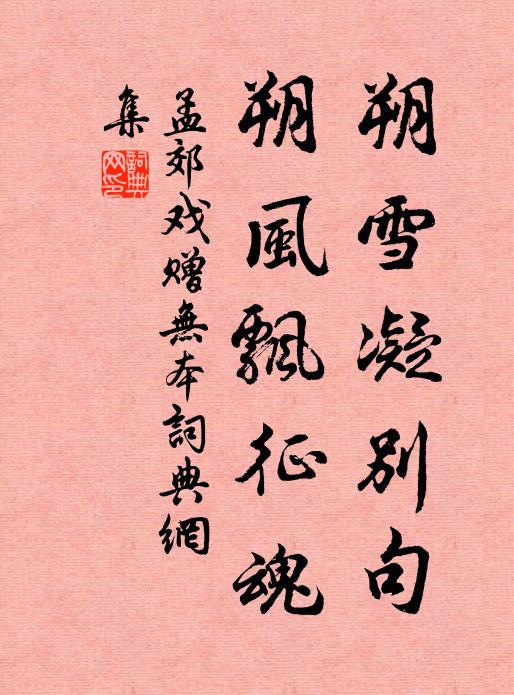 朔雪凝別句
朔風飄征魂
孟郊戏贈無本詞典網
集
詞典网印